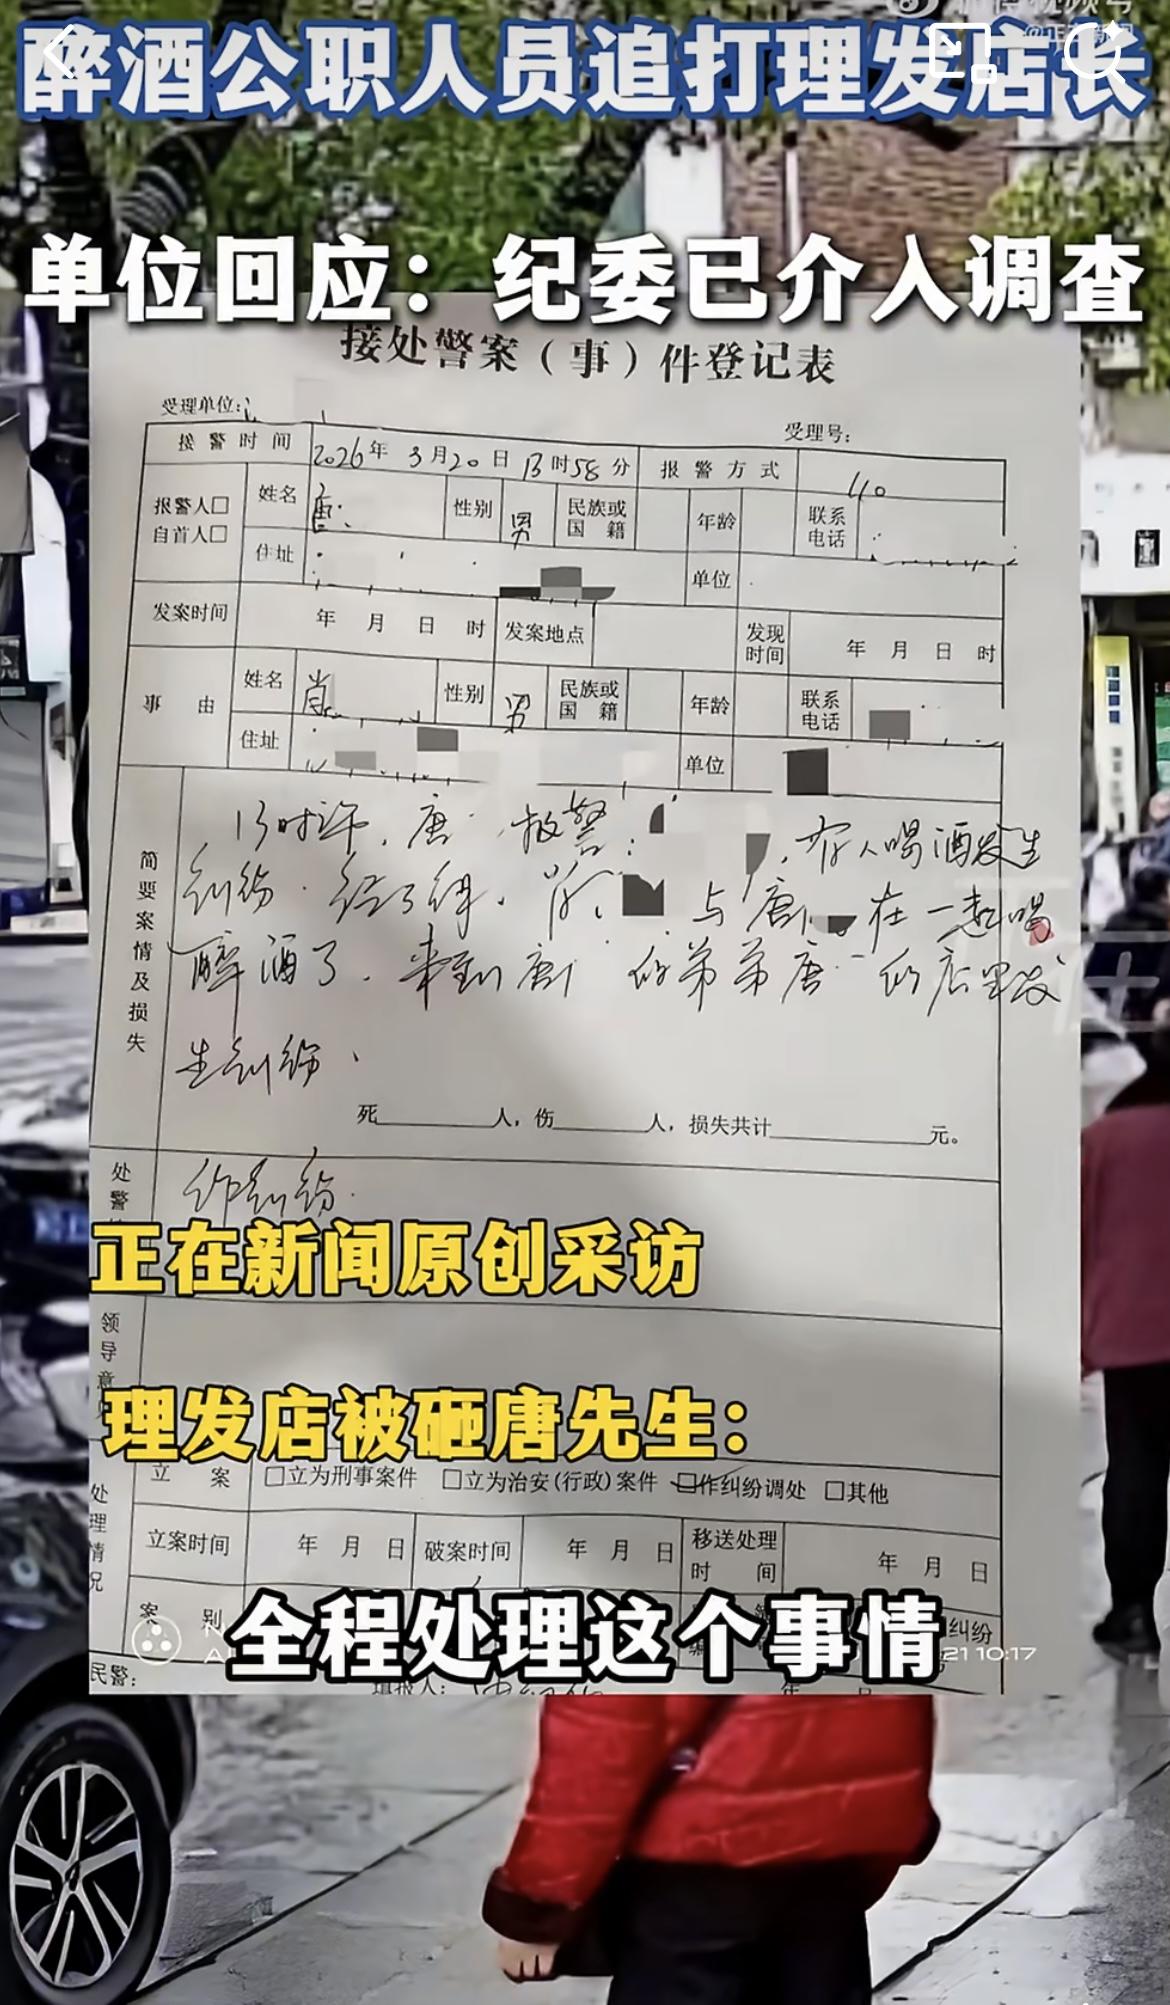 醉酒公职人员追打理发店长
单位回应：纪委已介入调查
接处警案（事）件登记表
受理单位：
受理号：
接警时间 2026年3月20日13时58分 报警方式 110
报警人□ 自首人□ 姓名 唐 性别 男 民族或国籍 年龄 联系电话
住址 单位
发案时间 年 月 日 时 发案地点 发现时间 年 月 日 时
事由 姓名 肖 性别 男 民族或国籍 年龄 联系电话
住址 单位
简要案情及损失
13时许，唐 报警： ，有人喝酒发生
纠纷．经了解． 与唐 在一起喝
醉酒了．来到唐 的弟弟唐 的店里发
生纠纷．
死 人，伤 人，损失共计 元。
处警
作纠纷．
正在新闻原创采访
领导意
理发店被砸唐先生：
处理情况
立案 □立为刑事案件 □立为治安(行政)案件 □作纠纷调处 □其他
立案时间 年 月 日 破案时间 年 月 日 移送处理时间 年 月 日
案别 纠纷
全程处理这个事情
21 10:17
民警： 填报人： 年 日